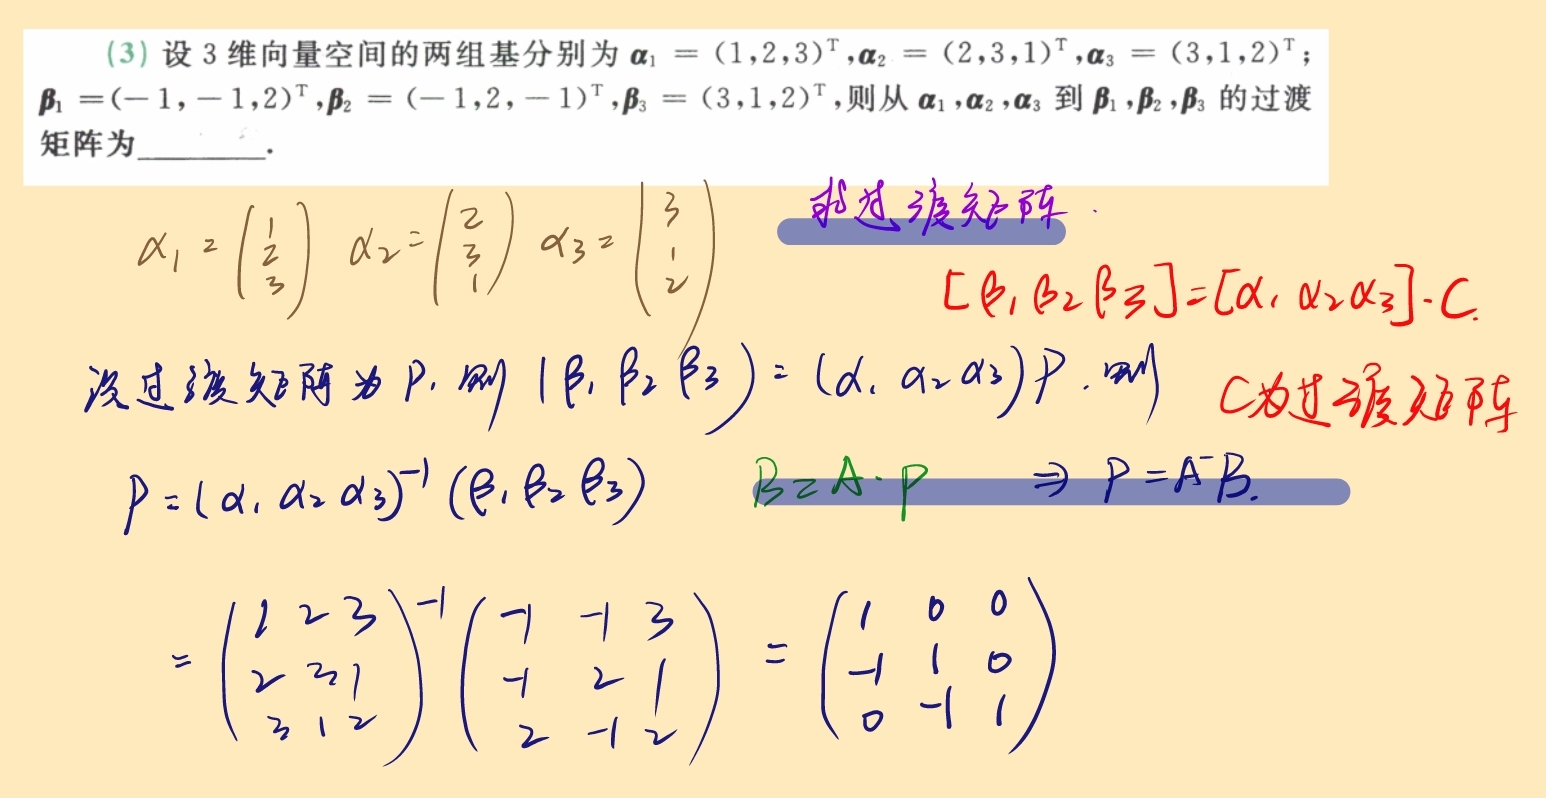 (3) 设 3 维向量空间的两组基分别为 α₁ = (1,2,3)ᵀ,α₂ = (2,3,1)ᵀ,α₃ = (3,1,2)ᵀ;
β₁ =(-1,-1,2)ᵀ,β₂ = (-1,2,-1)ᵀ,β₃ = (3,1,2)ᵀ,则从 α₁,α₂,α₃ 到 β₁,β₂,β₃ 的过渡
矩阵为________.
求过渡矩阵.
α₁ = (1 2 3) α₂ = (2 3 1) α₃ = (3 1 2)
[β₁ β₂ β₃] = [α₁ α₂ α₃]·C.
设过渡矩阵为 P. 则 (β₁ β₂ β₃) = (α₁ α₂ α₃)P. 则
C为过渡矩阵
P = (α₁ α₂ α₃)⁻¹ (β₁ β₂ β₃) B = A·P ⇒ P = A⁻B.
= (1 2 3)⁻¹ (-1 -1 3) = (1 0 0)
(2 3 1) (-1 2 1) (-1 1 0)
(3 1 2) (2 -1 2) (0 -1 1)